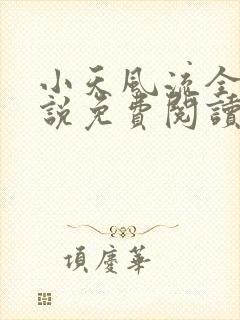 小天風流全
說免費閱讀
項慶華